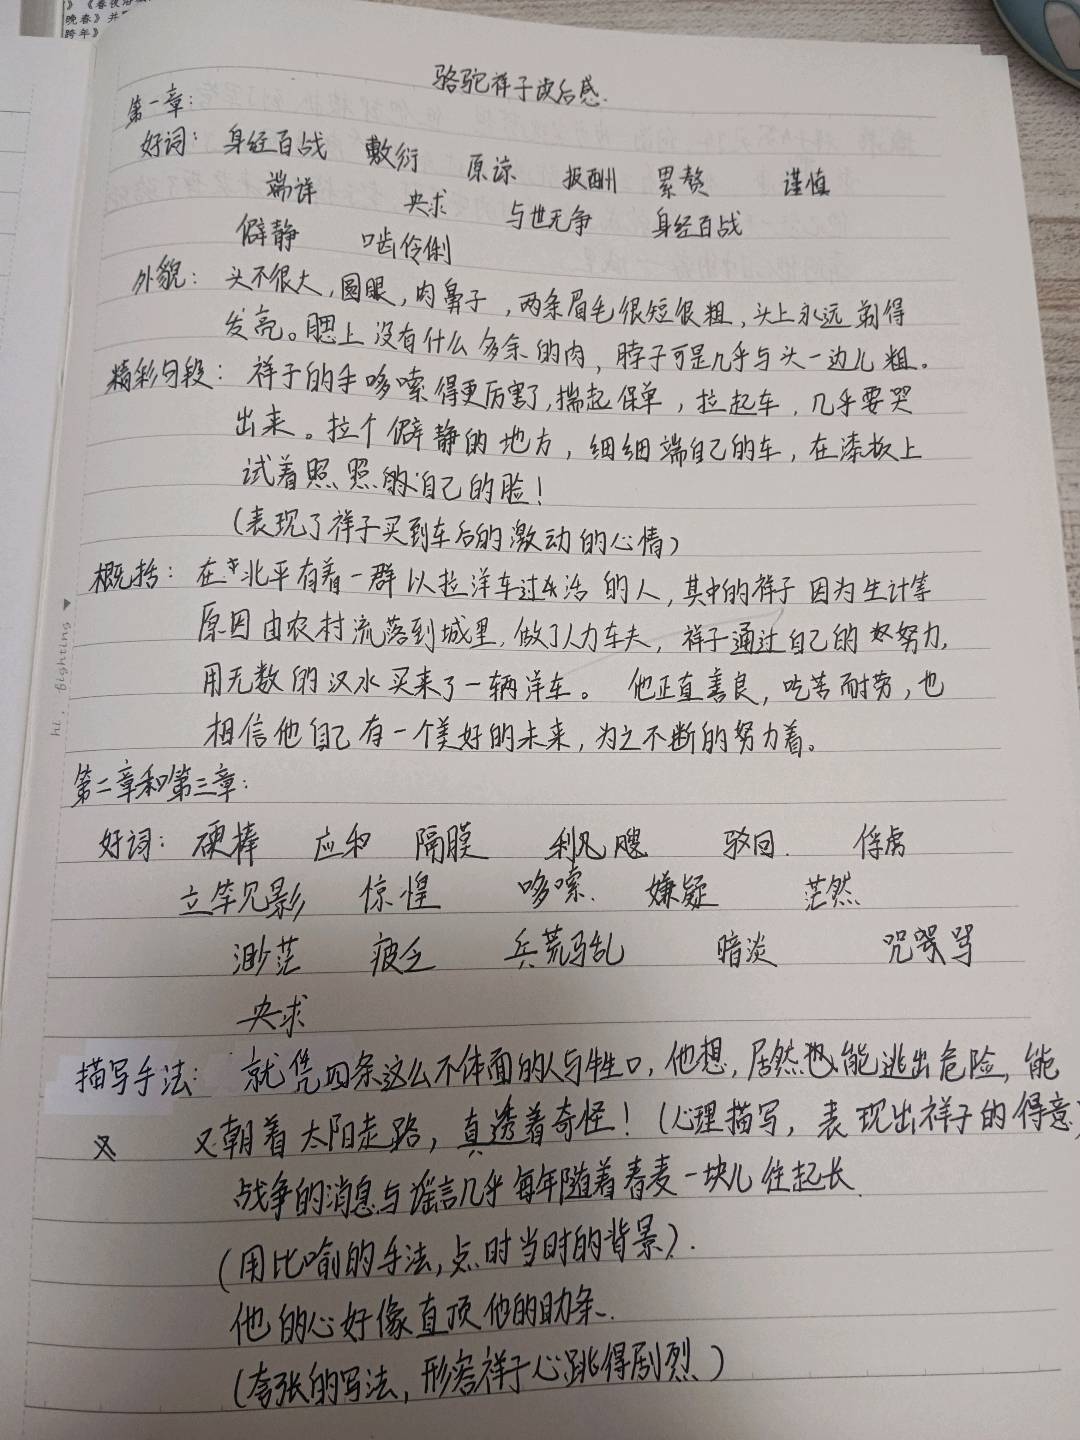 》《春夜洛
晚春》并
跨年》
骆驼祥子读后感.
第一章:
好词: 身经百战 敷衍 原谅 报酬 累赘 谨慎
端详 央求 与世无争 身经百战
僻静 啮伶俐
外貌: 头不很大,圆眼,肉鼻子,两条眉毛很短很粗,头上永远剃得
发亮。腮上没有什么多余的肉,脖子可是几乎与头一边儿粗。
精彩句段: 祥子的手哆嗦得更厉害了,揣起保单,拉起车,几乎要哭
出来。拉个僻静的地方,细细端自己的车,在漆板上
试着照照的自己的脸!
(表现了祥子买到车后的激动的心情)
概括: 在北平有着一群以拉洋车过生活的人,其中的祥子因为生计等
原因由农村流落到城里,做了人力车夫,祥子通过自己的努力,
用无数的汉水买来了一辆洋车。他正直善良,吃苦耐劳,也
相信他自己有一个美好的未来,为之不断的努力着。
hi, fighting
第二章和第三章:
好词: 硬棒 应和 隔膜 利飕 驳回. 俘虏
立竿见影 惊惶 哆嗦. 嫌疑 茫然
渺茫 疲乏 兵荒马乱 暗淡 咒骂
央求
描写手法: 就凭四条这么不体面的人与牲口,他想,居然能逃出危险,能
又 又朝着太阳走路,真透着奇怪!(心理描写,表现出祥子的得意)
战争的消息与谣言几乎每年随着春麦一块儿往起长
(用比喻的手法,点时当时的背景).
他的心好像直顶他的肋条.
(夸张的写法,形容祥子心跳得剧烈)